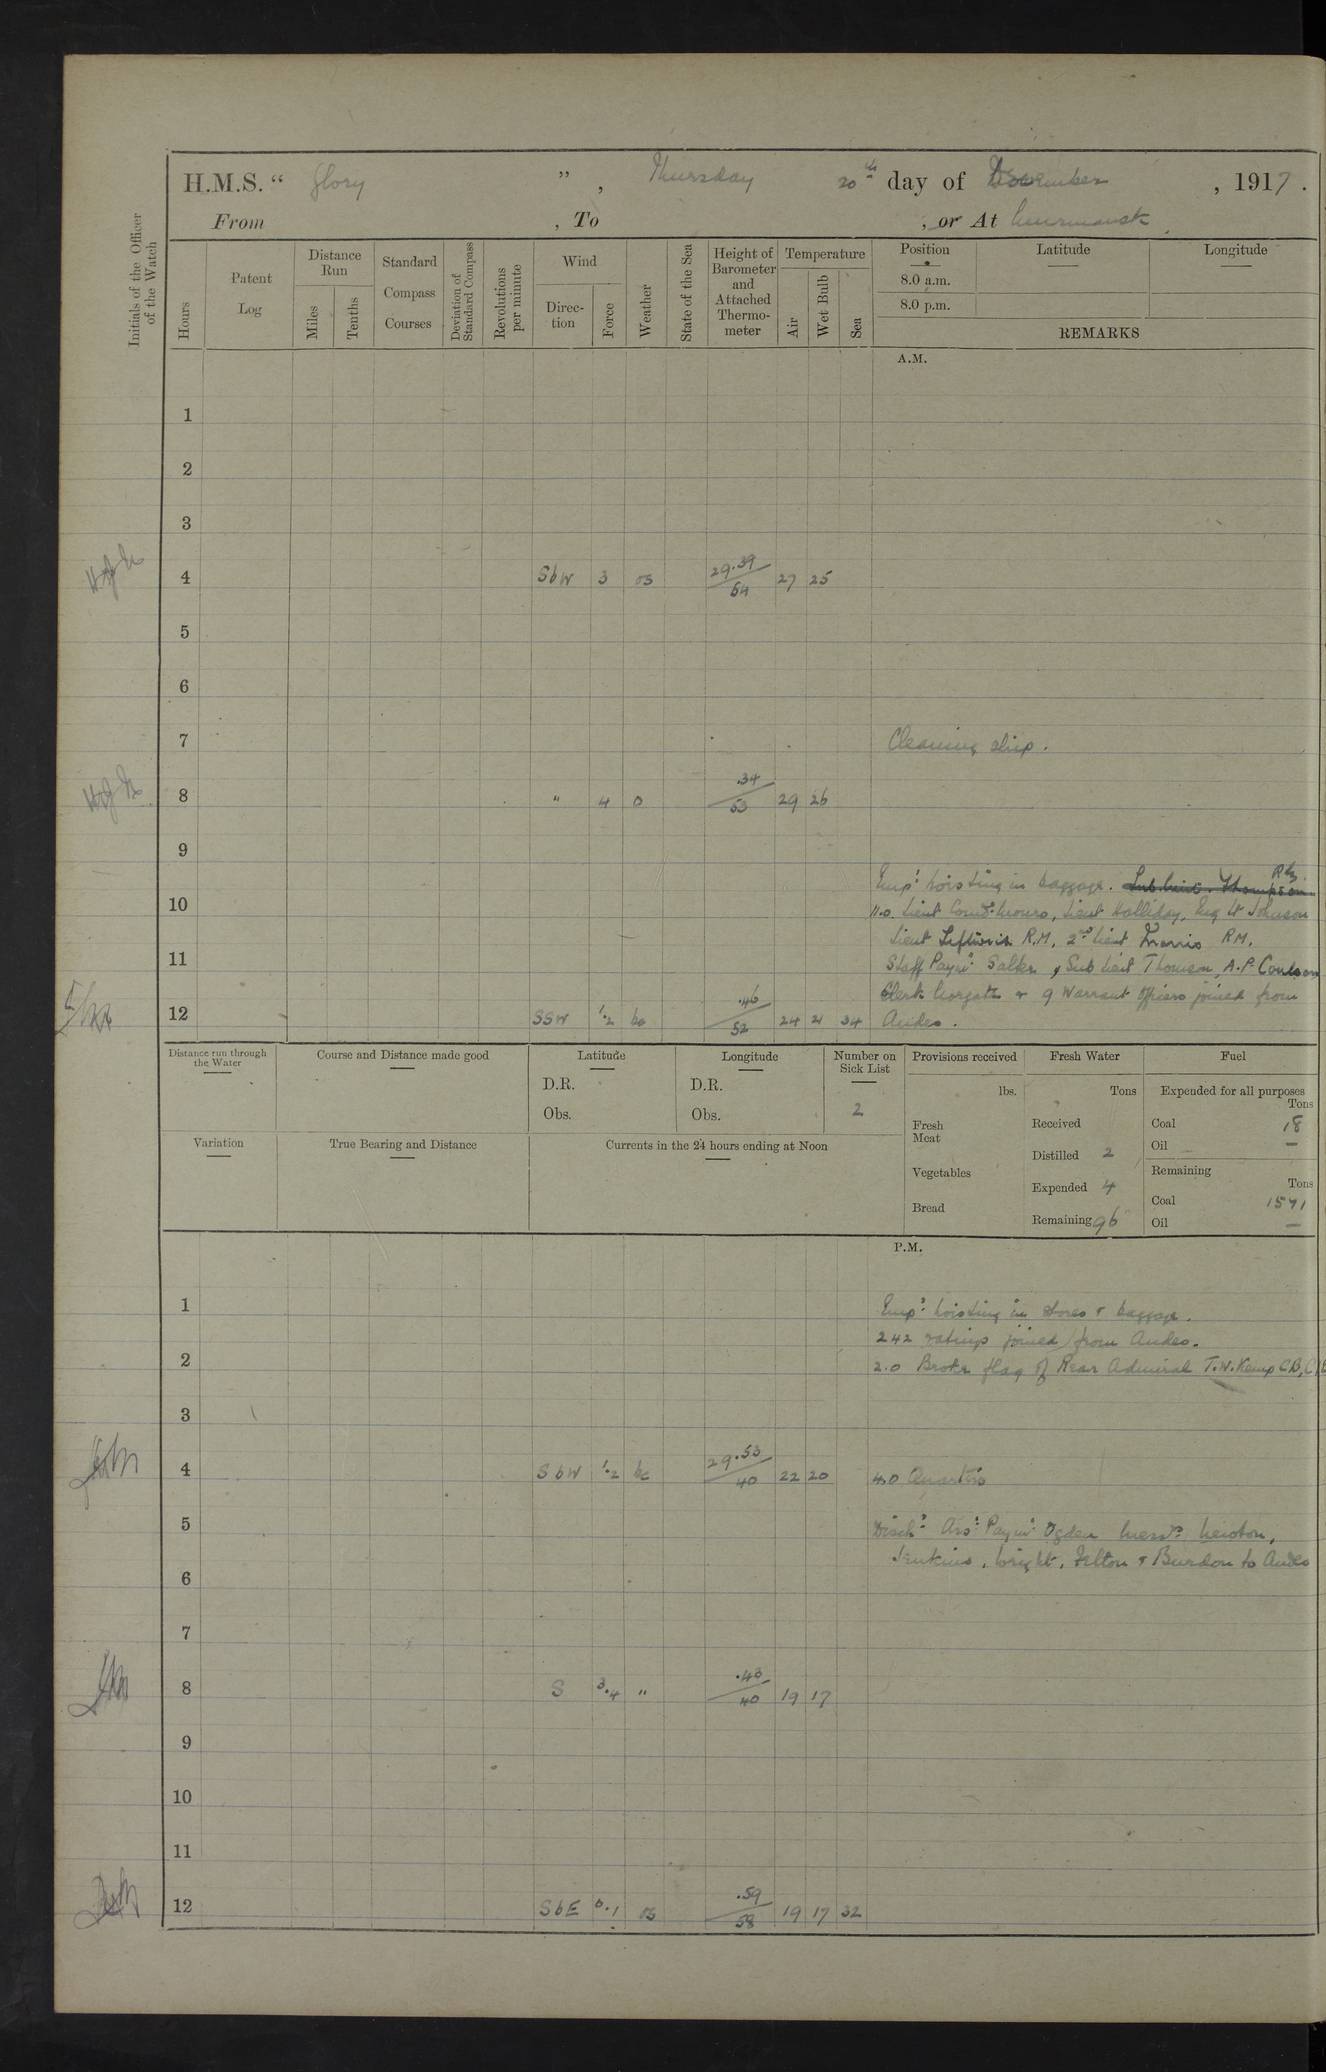 H.M.S. “ Glory ” , Thursday 20th day of December , 1917.
From , To , or At Murmansk
Initials of the Officer of the Watch
Hours
Patent Log
Distance Run
Miles
Tenths
Standard Compass Courses
Deviation of Standard Compass
Revolutions per minute
Wind
Direc-tion
Force
Weather
State of the Sea
Height of Barometer and Attached Thermo-meter
Temperature
Air
Wet Bulb
Sea
Position
Latitude
Longitude
8.0 a.m.
8.0 p.m.
REMARKS
A.M.
1
2
3
4 SbW 3 os 29.39/54 27 25
5
6
7 Cleaning ship.
8 " 4 o .34/53 29 26
9
Emp: hoisting in baggage. Sub Lieut. Thompson
10
11.0 Lieut Comd: Lieut Halliday, Eng Lt Johnson
Lieut Leftwich R.M. 2nd Lieut Francis R.M.
11
Staff Paym: Salter, Sub Lieut Thomson, A.P. Coulson
Clerk & 9 Warrant Officers joined from
12 SSW 1.2 bc .46/52 24 21 34 Andes.
Distance run through the Water
Course and Distance made good
Latitude
D.R.
Obs.
Longitude
D.R.
Obs.
Number on Sick List
2
Provisions received
lbs.
Fresh Meat
Vegetables
Bread
Fresh Water
Tons
Received
Distilled 2
Expended 4
Remaining 96
Fuel
Expended for all purposes
Tons
Coal 18
Oil —
Remaining
Tons
Coal 1571
Oil —
Variation
True Bearing and Distance
Currents in the 24 hours ending at Noon
P.M.
1 Emp: hoisting in stores & baggage.
242 ratings joined from Andes.
2 2.0 Broke flag of Rear Admiral T.W. Kemp CB,
3
4 SbW 1.2 bc 29.53/40 22 20 4.0 Quarters
5 Disch: Ass: Paym: Ogden Messrs: Newton,
Jenkins, Wright, Felton & Burdon to Andes
6
7
8 S 3.4 " .43/40 19 17
9
10
11
12 SbE 0.1 os .59/58 19 17 32